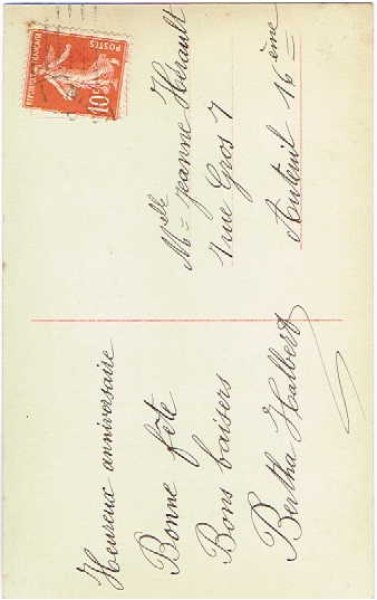 Heureux anniversaire
Bonne fête
Bons baisers
Bertha Halbert
REPUBLIQUE FRANÇAISE
POSTES
10c
Melle Jeanne Hérault
7 rue Gros 7
Auteuil 16ème